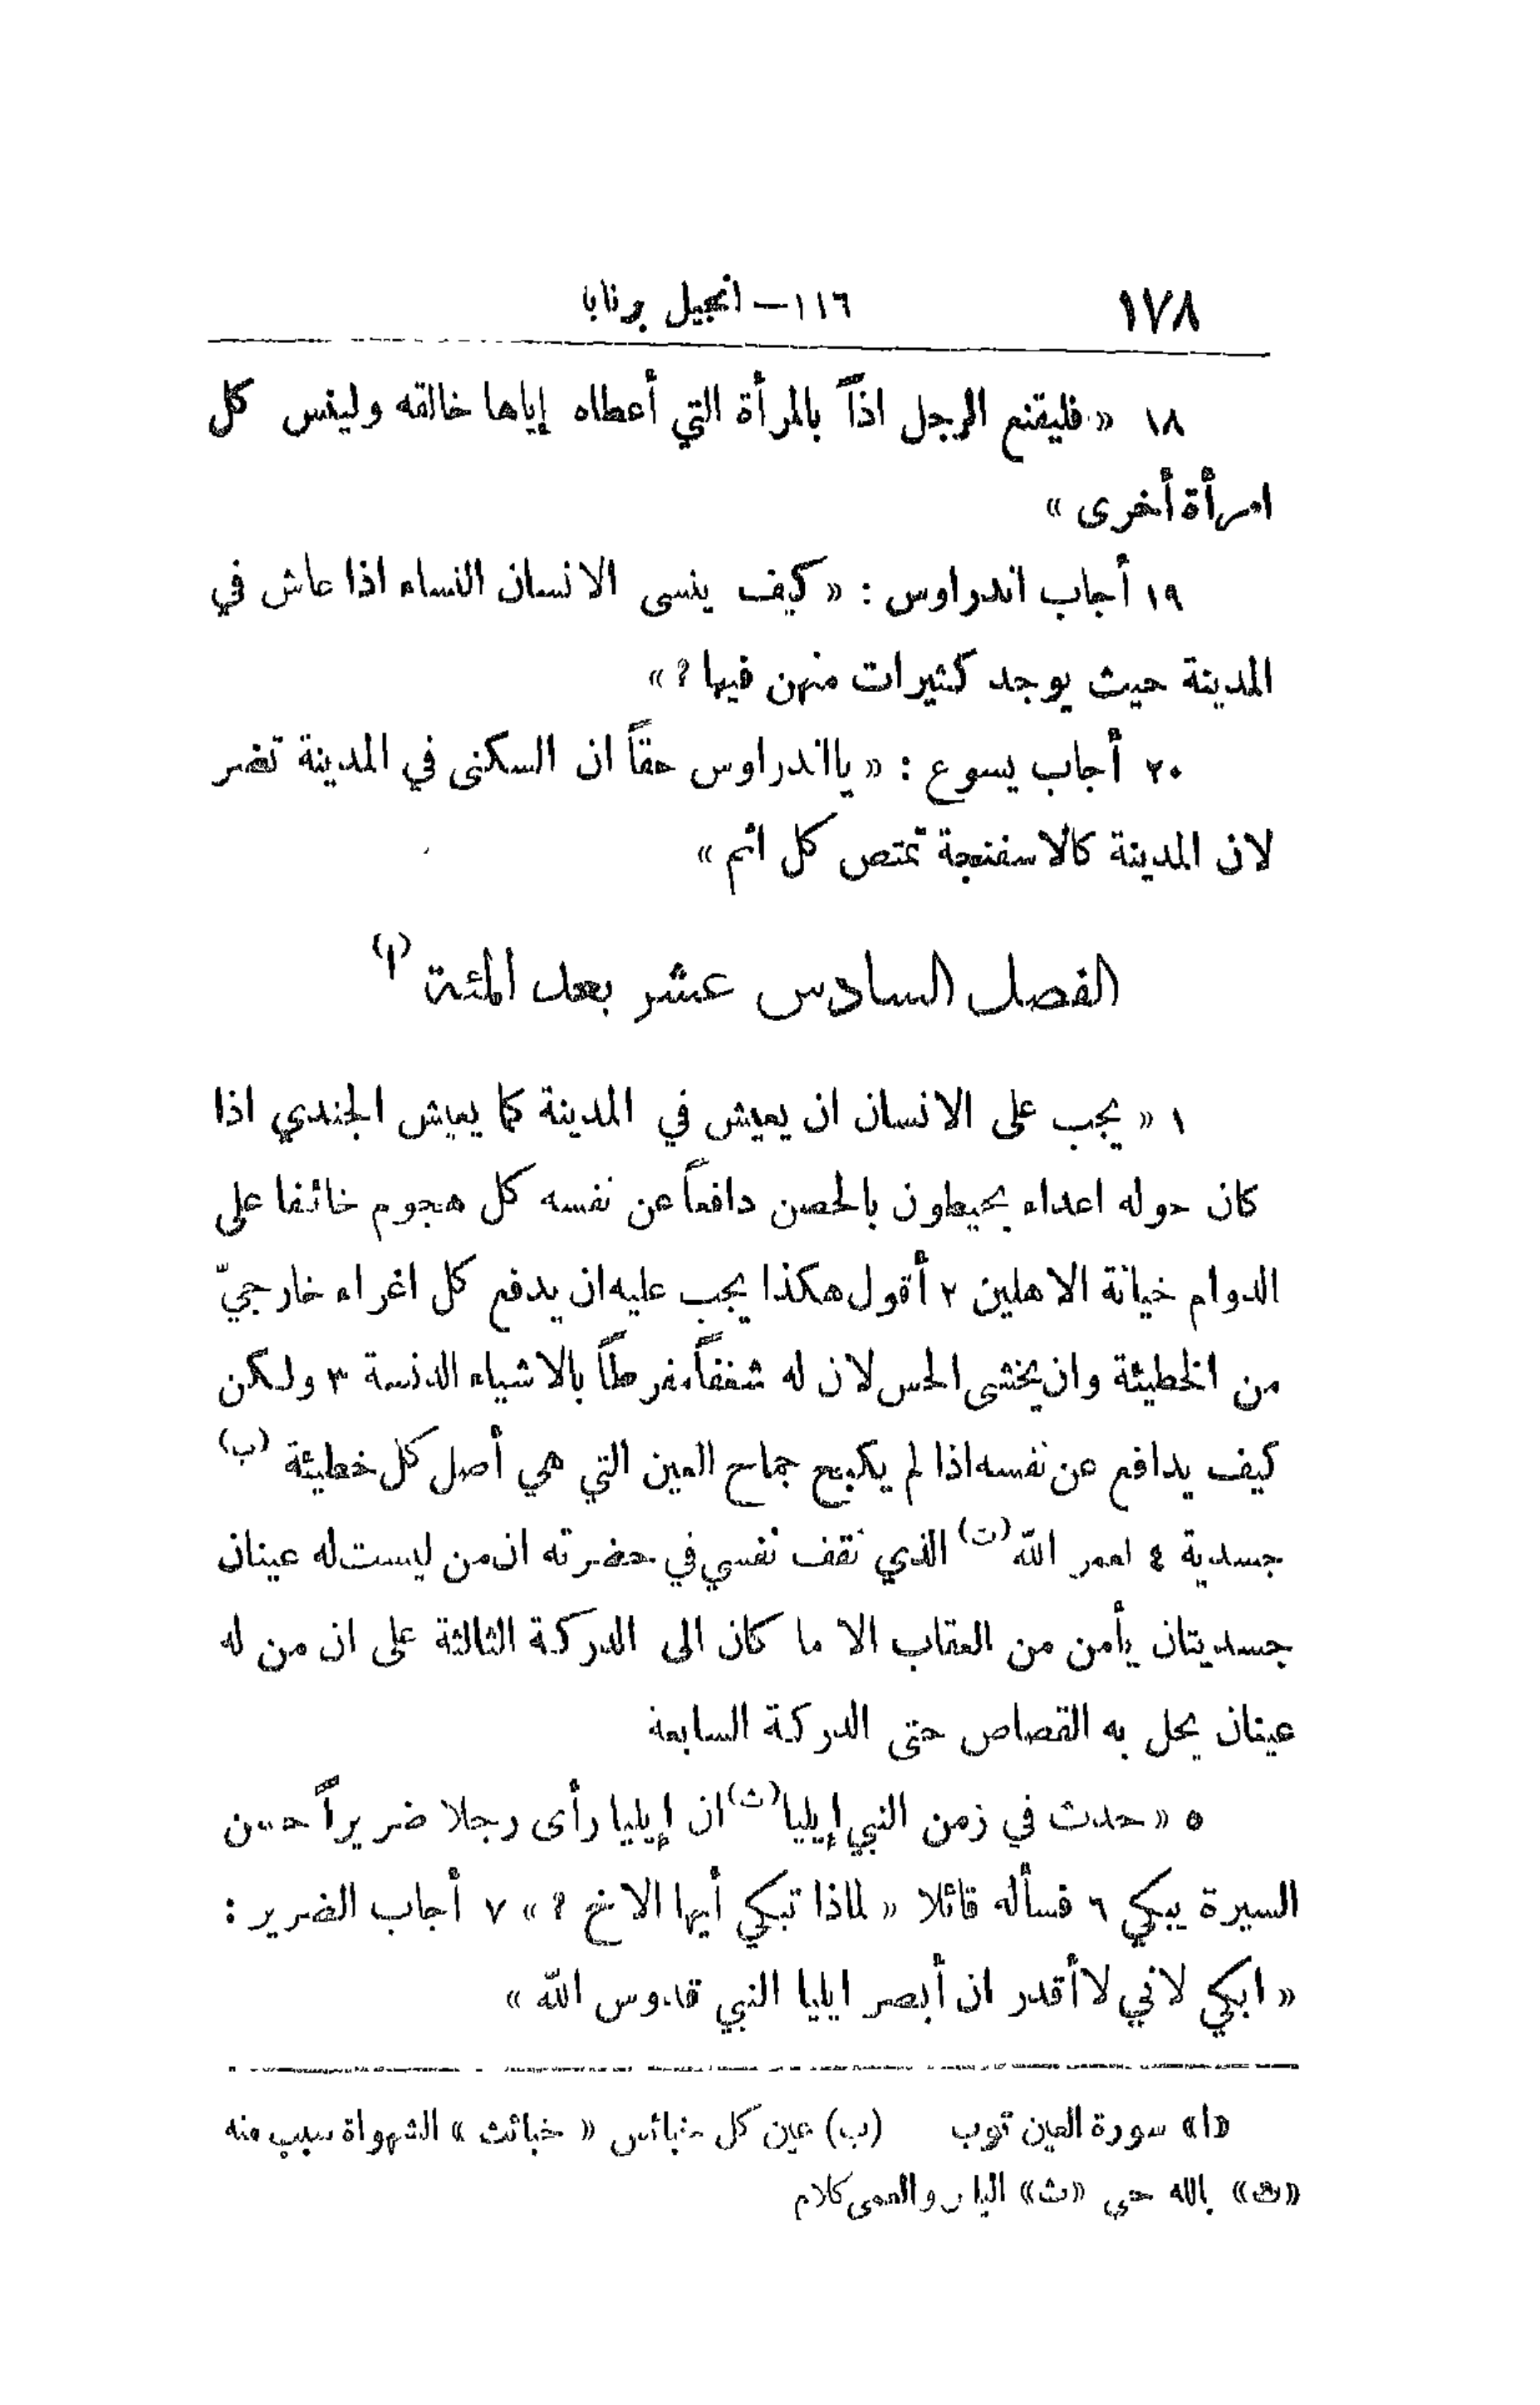 ١٧٨ ١١٦ — انجيل برنابا
١٨ « فليقنع الرجل اذاً بالمرأة التي أعطاه إياها خالقه ولينس كل
امرأة أخرى »
١٩ أجاب اندراوس : « كيف ينسى الانسان النساء اذا عاش في
المدينة حيث يوجد كثيرات منهن فيها ? »
٢٠ أجاب يسوع : « يااندراوس حقاً ان السكنى في المدينة تضر
لان المدينة كالاسفنجة تمتص كل اثم »
الفصل السادس عشر بعد المئة (ا)
١ « يجب على الانسان ان يعيش في المدينة كما يعيش الجندي اذا
كان حوله اعداء يحيطون بالحصن دافعاً عن نفسه كل هجوم خائفا على
الدوام خيانة الاهلين ٢ أقول هكذا يجب عليه ان يدفع كل اغراء خارجيّ
من الخطيئة وان يخشى الحس لان له شغفاً مفرطاً بالاشياء الدنسة ٣ ولكن
كيف يدافع عن نفسه اذا لم يكبح جماح العين التي هي أصل كل خطيئة (ب)
جسدية ٤ لعمر الله (ت) الذي تقف نفسي في حضرته ان من ليست له عينان
جسديتان يأمن من العقاب الا ما كان الى الدركة الثالثة على ان من له
عينان يحل به القصاص حتى الدركة السابعة
٥ « حدث في زمن النبي إيليا (ث) ان إيليا رأى رجلا ضريراً حسن
السيرة يبكي ٦ فسأله قائلا « لماذا تبكي أيها الاخ ? » ٧ أجاب الضرير :
« ابكي لاني لا أقدر ان أبصر ايليا النبي قدوس الله »
«ا» سورة العين توب (ب) عين كل خبائس « خبائث » الشهواة سبب منه
«ت» بالله حي «ث» الياس والعمى كلام